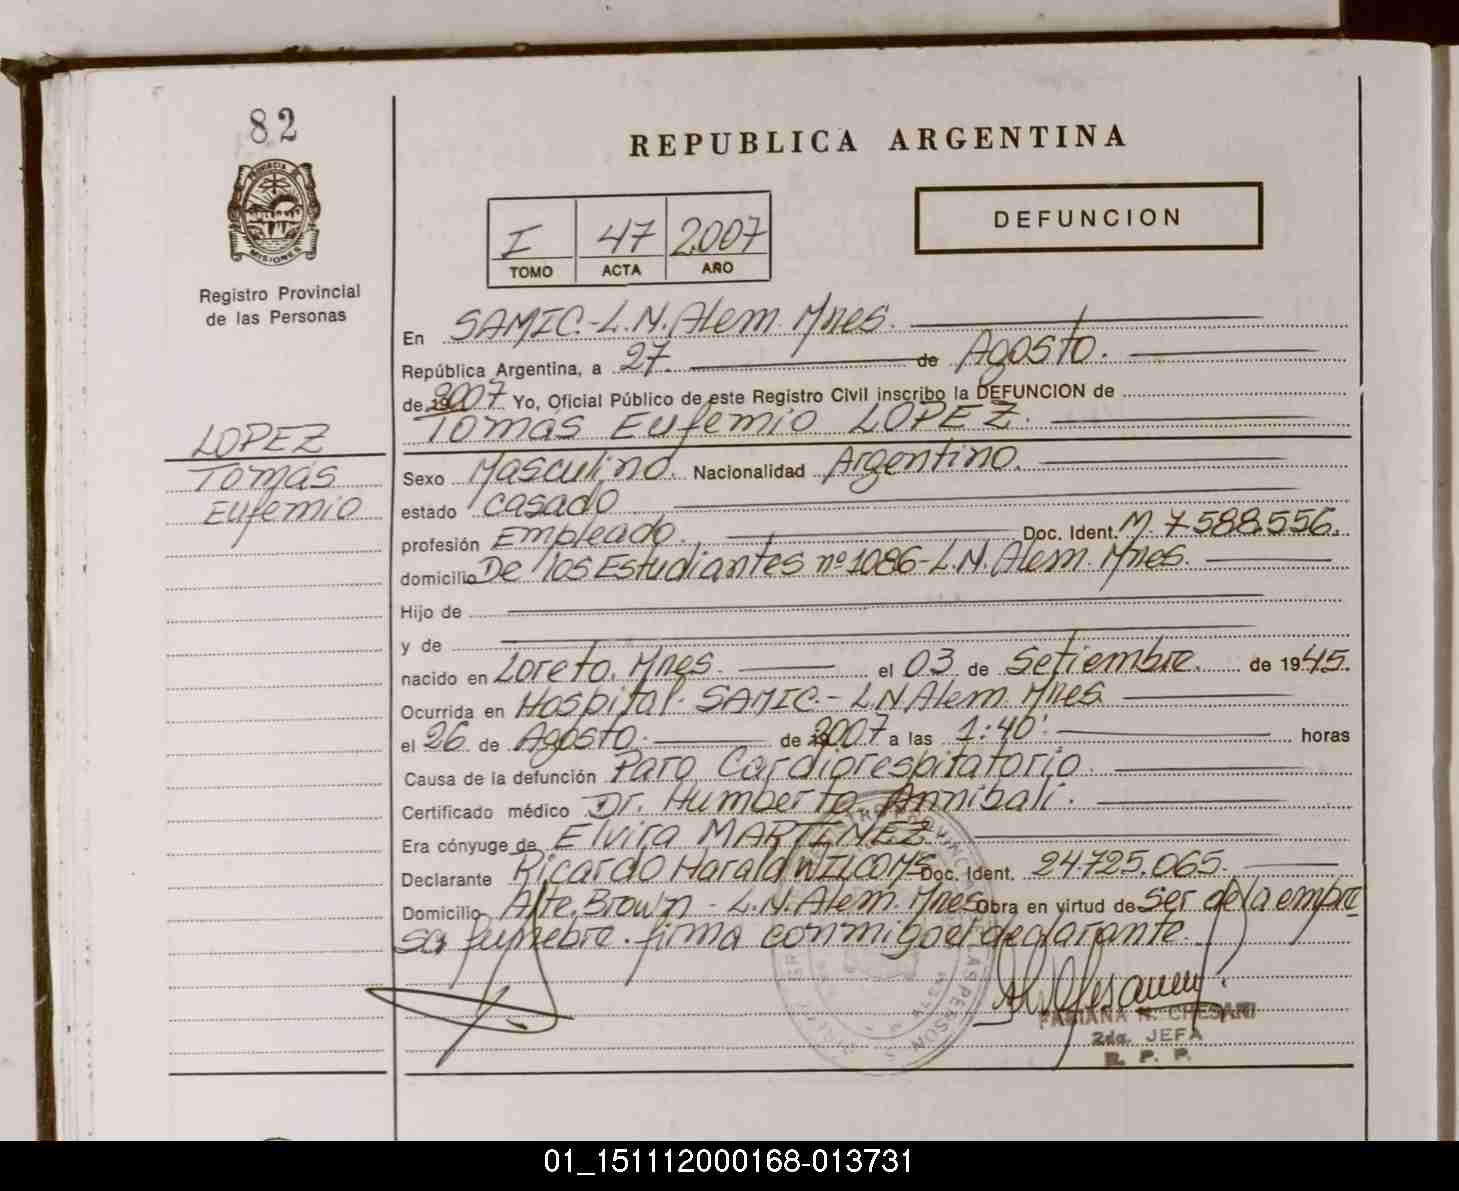 82
PROVINCIA DE
MISIONES
Registro Provincial
de las Personas
LOPEZ
Tomás
Eufemio
REPUBLICA ARGENTINA
I 47 2007
TOMO ACTA AÑO
DEFUNCION
En SAMIC.-L.N.Alem. Mnes.
República Argentina, a 27. de Agosto.
de 2007 Yo, Oficial Público de este Registro Civil inscribo la DEFUNCION de
Tomás Eufemio LOPEZ.
Sexo Masculino. Nacionalidad Argentino.
estado casado
profesión Empleado. Doc. Ident. M. 7.588.556.
domicilio De los Estudiantes nº 1086-L.N.Alem. Mnes.
Hijo de
y de
nacido en Loreto. Mnes. el 03 de Setiembre. de 1945.
Ocurrida en Hospital. SAMIC.- L.N Alem. Mnes.
el 26 de Agosto. de 2007 a las 1:40' horas
Causa de la defunción Paro Cardiorespitatorio
Certificado médico Dr. Humberto. Annibali.
Era cónyuge de Elvira MARTINEZ.
Declarante Ricardo Harald Doc. Ident. 24.725.065.
Domicilio Alte.Brown - L.N.Alem. Mnes Obra en virtud de ser de la empre
sa funebre. firma conmigo el declarante.
FABIANA N. CHESANI
2da. JEFA
R. P. P.
01_151112000168-013731